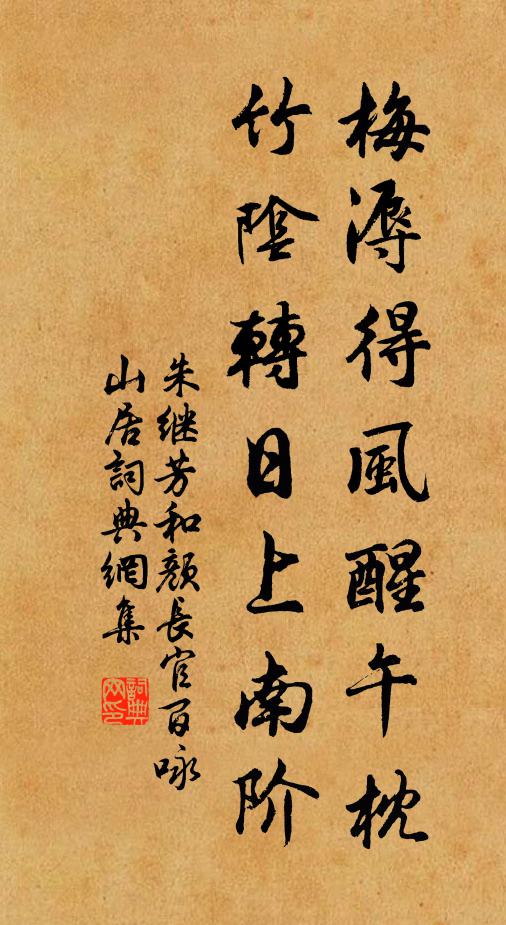 梅溽得風醒午枕
竹陰轉日上南阶
朱继芳和顔長官百咏
山居詞典網集
詞典網印